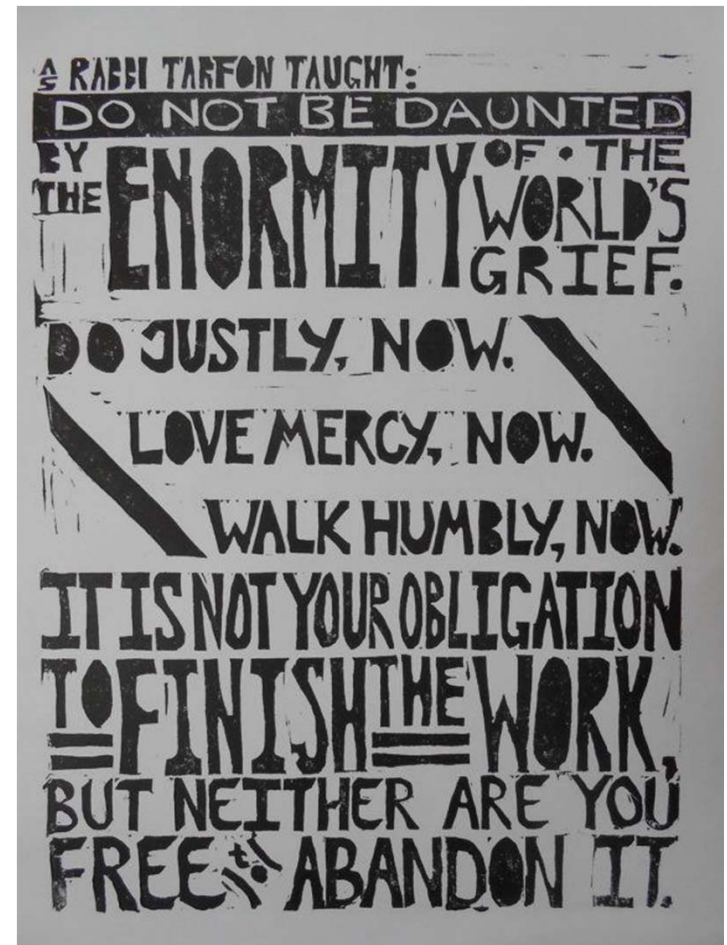 AS RABBI TARFON TAUGHT:
DO NOT BE DAUNTED
BY THE ENORMITY OF • THE WORLD'S GRIEF.
DO JUSTLY, NOW.
LOVE MERCY, NOW.
WALK HUMBLY, NOW.
IT IS NOT YOUR OBLIGATION
TO FINISH THE WORK,
BUT NEITHER ARE YOU
FREE to ABANDON IT.